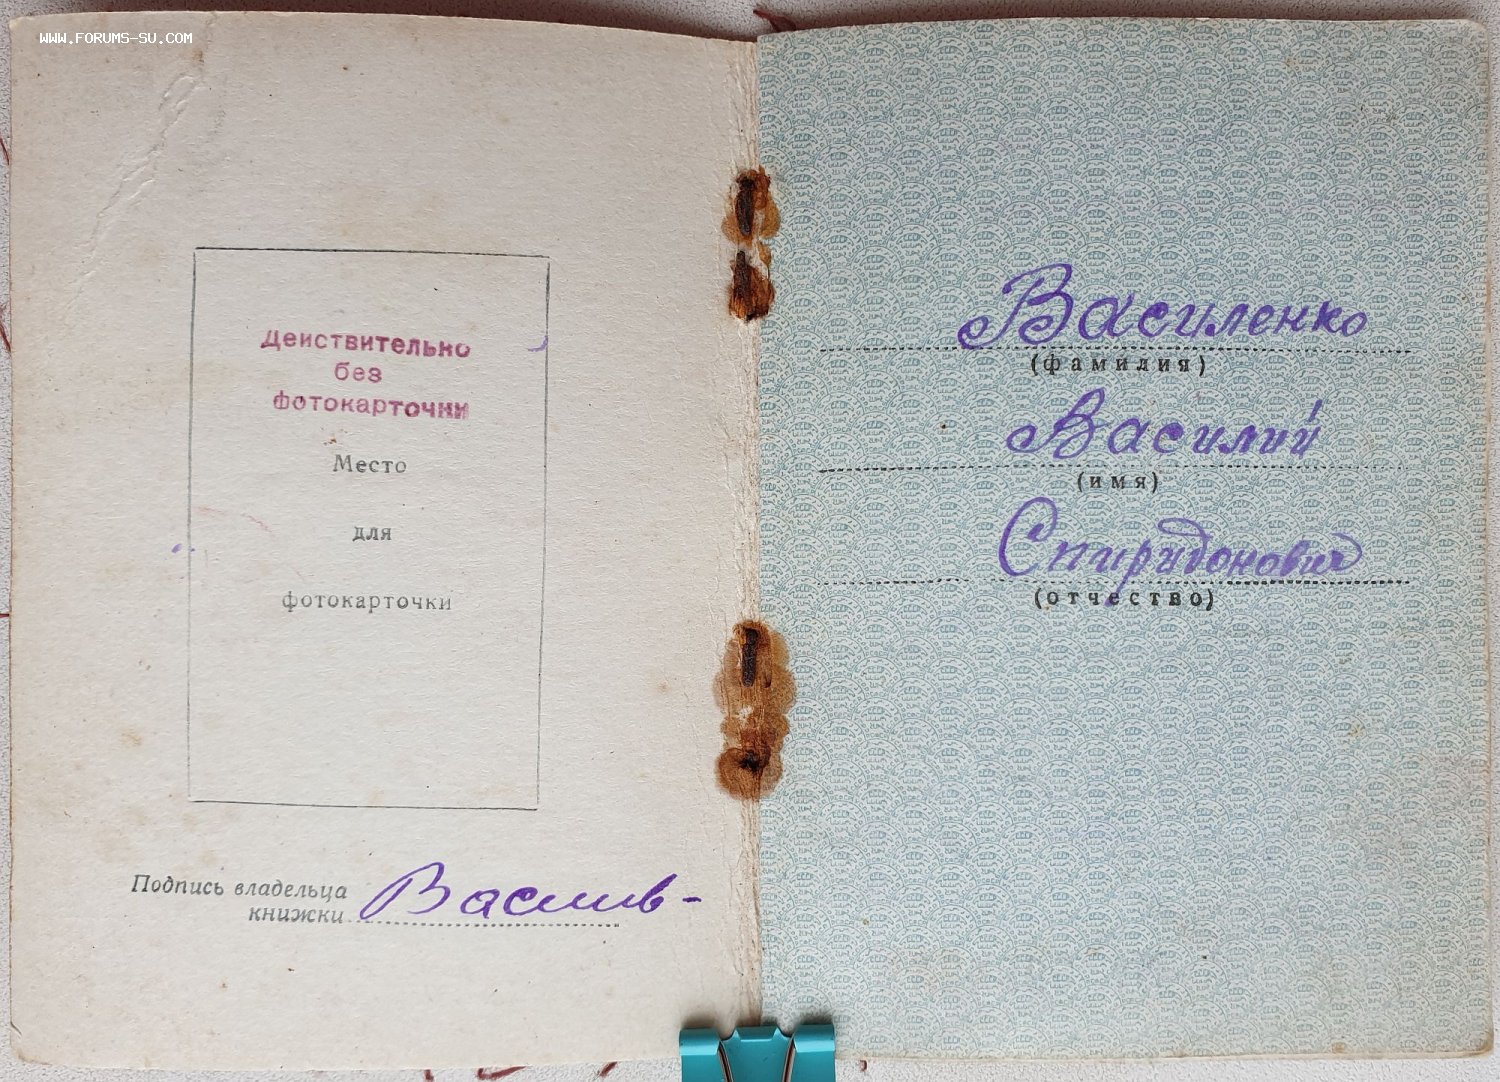 WWW.FORUMS-SU.COM
Действительно
без
фотокарточки
Место
для
фотокарточки
Подпись владельца
книжки
Василенко
(фамилия)
Василий
(имя)
Спиридонович
(отчество)